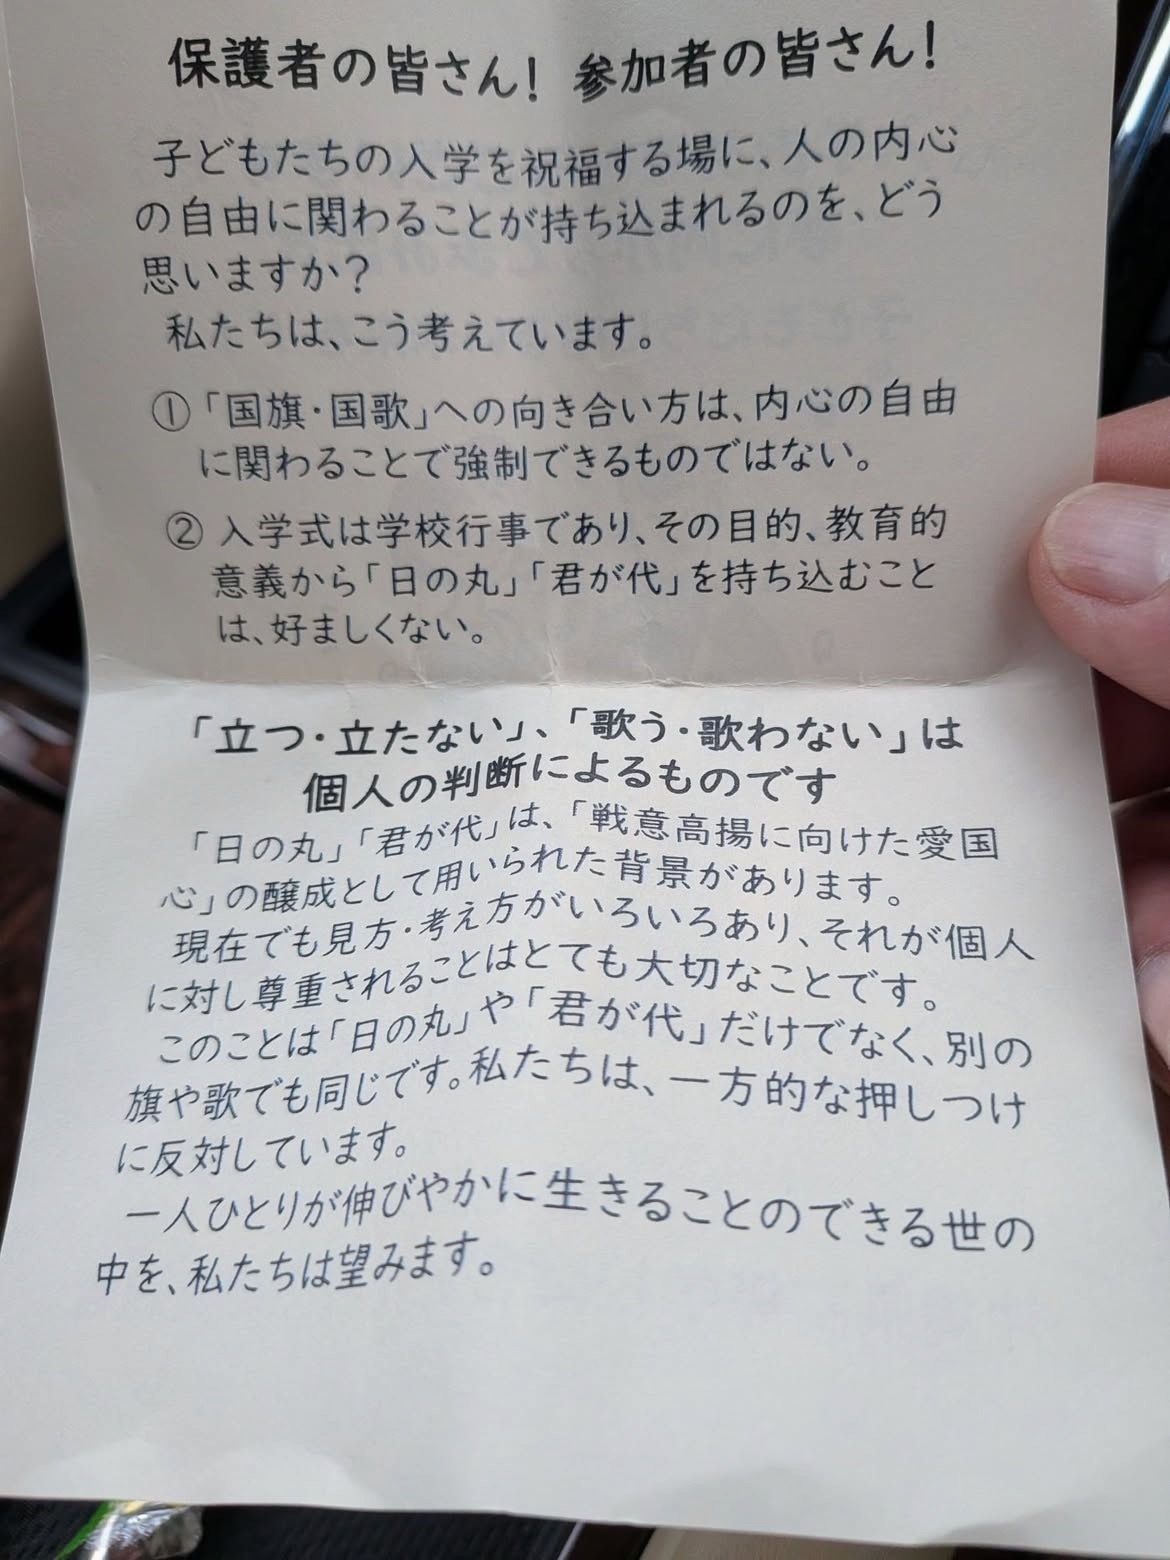 保護者の皆さん! 参加者の皆さん!
子どもたちの入学を祝福する場に、人の内心
の自由に関わることが持ち込まれるのを、どう
思いますか?
私たちは、こう考えています。
①「国旗・国歌」への向き合い方は、内心の自由
に関わることで強制できるものではない。
② 入学式は学校行事であり、その目的、教育的
意義から「日の丸」「君が代」を持ち込むこと
は、好ましくない。
「立つ・立たない」、「歌う・歌わない」は
個人の判断によるものです
「日の丸」「君が代」は、「戦意高揚に向けた愛国
心」の醸成として用いられた背景があります。
現在でも見方・考え方がいろいろあり、それが個人
に対し尊重されることはとても大切なことです。
このことは「日の丸」や「君が代」だけでなく、別の
旗や歌でも同じです。私たちは、一方的な押しつけ
に反対しています。
一人ひとりが伸びやかに生きることのできる世の
中を、私たちは望みます。